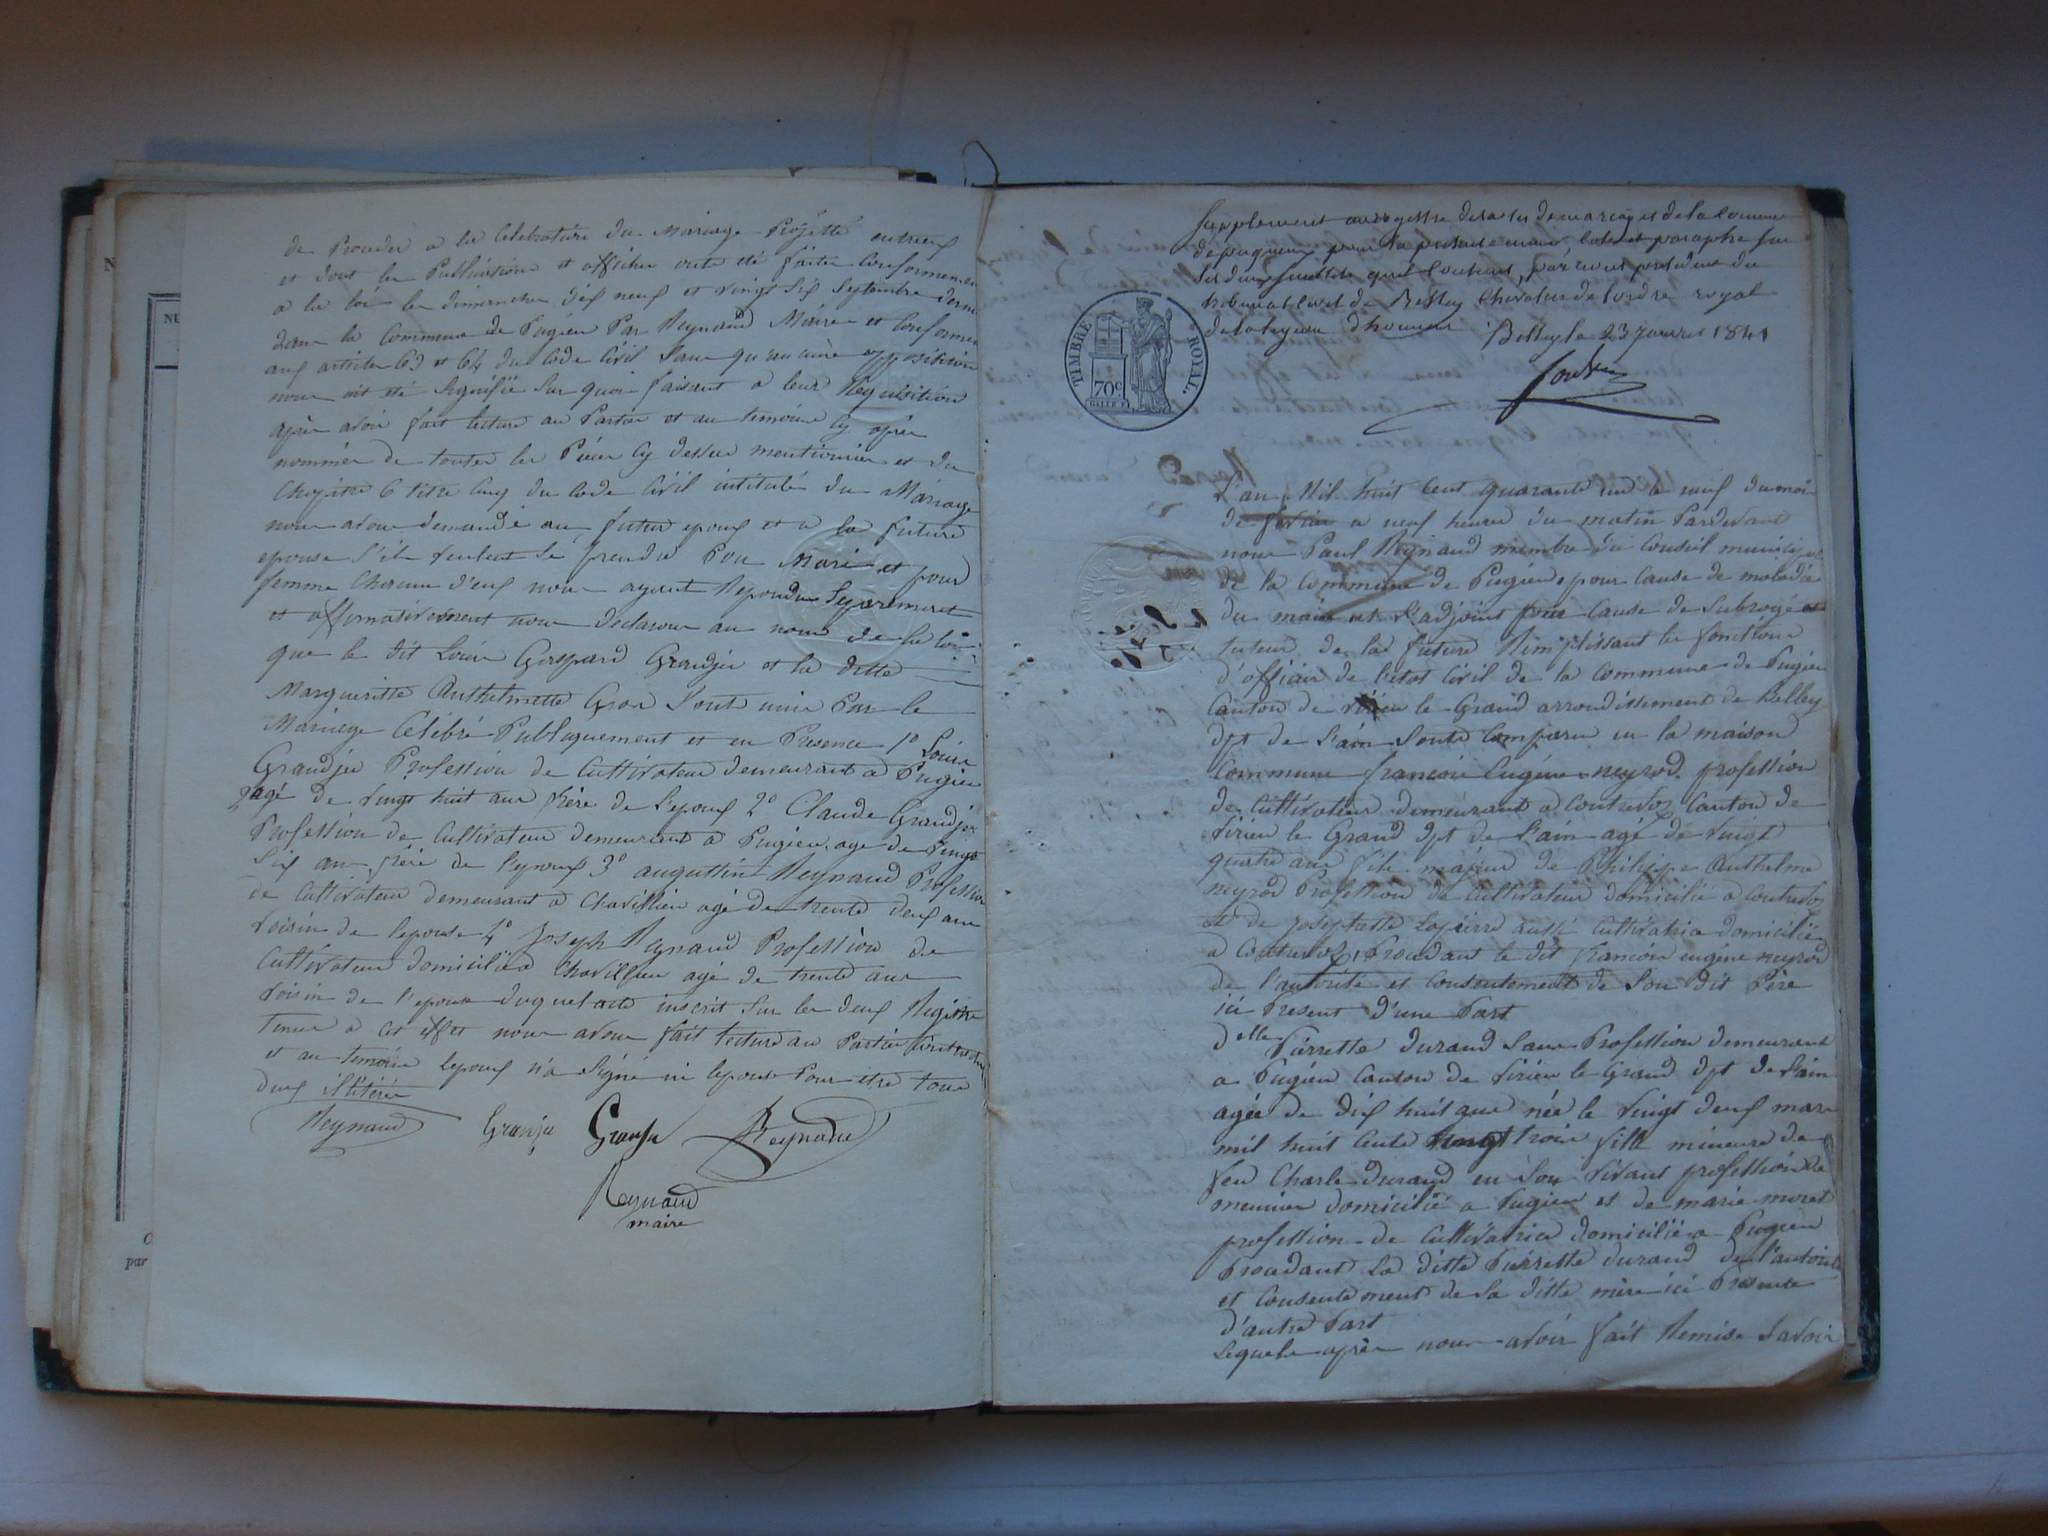 de Proceder a la Celebration du Mariage Projetté entreux
et dont les Publications et affiches ont été faites Conformement
a la loi les dimanches dix neuf et vingt six Septembre dernier
dans la Commune de Pugieu Par Reynaud Maire et Conforme
aux articles 63 et 64 du Code Civil Sans qu'aucune opposition
nous ait été Signifiée Sur quoi faisant a leur Réquisition
après avoir fait lecture aux Parties et aux temoins Cy après
nommés de toutes les Pièces Cy dessus mentionnées et du
Chapitre 6 titre Cinq du Code Civil intitulé du Mariage
nous avons demandé au futur epoux et a la future
epouse S'ils veulent Se prendre Pour Mari et pour
femme Chacun d'eux nous ayant Repondu Separement
et affirmativement nous declarons au nom de la loi
que le dit Louis Gaspard Grandjea et la ditte
Margueritte Anthelmette Gros Sont unis Par le
Mariage Célébré Publiquement et en Presence 1º Louis
Grandjea Profession de Cultivateur demeurant a Pugieu
agé de vingt huit ans frère de l'epoux 2º Claude Grandjea
Profession de Cultivateur demeurant a Pugieu, age de vingt
Six ans frère de l'epoux 3º augustin Reynaud Profession
de Cultivateur demeurant a Chavillieu agé de trente deux ans
voisin de l'epouse 4º Joseph Reynaud Profession de
Cultivateur domicilié a Chavillieu agé de trente ans
voisin de l'epouse duquel acte inscrit Sur les deux Registre
tenus a cet effet nous avons fait lecture aux Parties
et aux temoins l'epoux n'a Signé ni l'epouse Pour etre tous
deux illitérés
Reynaud Granjea Granjea Reynaud
Reynaud
maire
Supplement au registre des actes de mariages de la Commune
de pugieu, pour la presente année, coté et paraphé sur
les deux feuillets qu'il contient, par nous president du
tribunal Civil de Belley Chevalier de l'ordre royal
de la legion d'honneur Belley le 23 Janvier 1841
TIMBRE ROYAL
70c
L'an Mil huit Cent quarante un le neuf du moi
de fevrier a neuf heures du matin Pardevant
nous Paul Reynaud membre du Conseil municipal
de la Commune de Pugieu, pour Cause de maladie
du maire et l'adjoint pour Cause de Subrogé
tuteur de la future Remplissant les fonctions
d'officier de l'etat Civil de la Commune de Pugieu
Canton de virieu le Grand arrondissement de Belley
dpt de l'ain Sont Comparu en la maison
Commune francois Eugène neyrod profession
de Cultivateur demeurant a Contrevoz Canton de
virieu le Grand dpt de l'ain agé de vingt
quatre ans fils majeur de Philippe Anthelme
neyrod Profession de Cultivateur domicilié a Contrevoz
et de josephette Lapierre aussi Cultivatrice domiciliée
a Contrevoz, Procedant le dit francois eugène neyrod
de l'autorité et Consentement de Son dit Père
ici Present d'une Part
Delle Pierrette durand Sans Profession demeurant
a Pugieu Canton de virieu le Grand dpt de l'ain
agée de dix huit ans née le vingt deux mars
mil huit Cents vingt trois fille mineure de
feu Charle durand en Son vivant profession de
meunier domicilié a Pugieu et de marie muret
profession de Cultivatrice domiciliée a Pugieu
Procedant La ditte Pierrette durand de l'autorité
et Consentement de Sa ditte mère ici Présente
d'autre Part
Lequels après nous avoir fait Remise Savoir